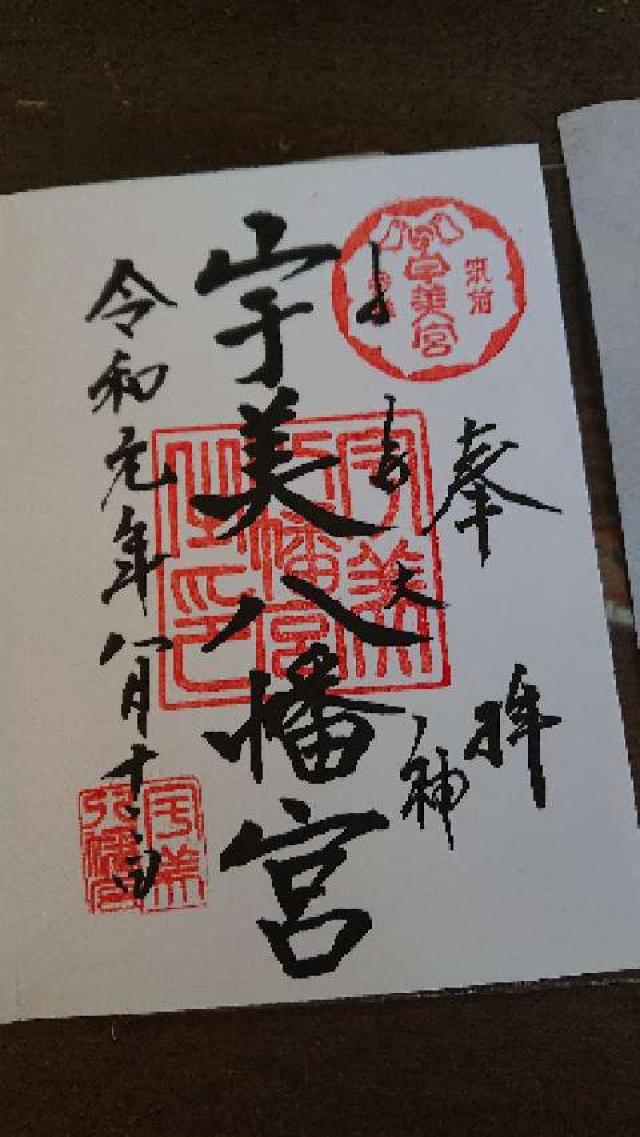 奉拝
大神
宇美八幡宮
令和元年八月十二日
筑前
宇美宮
宇美
八幡宮